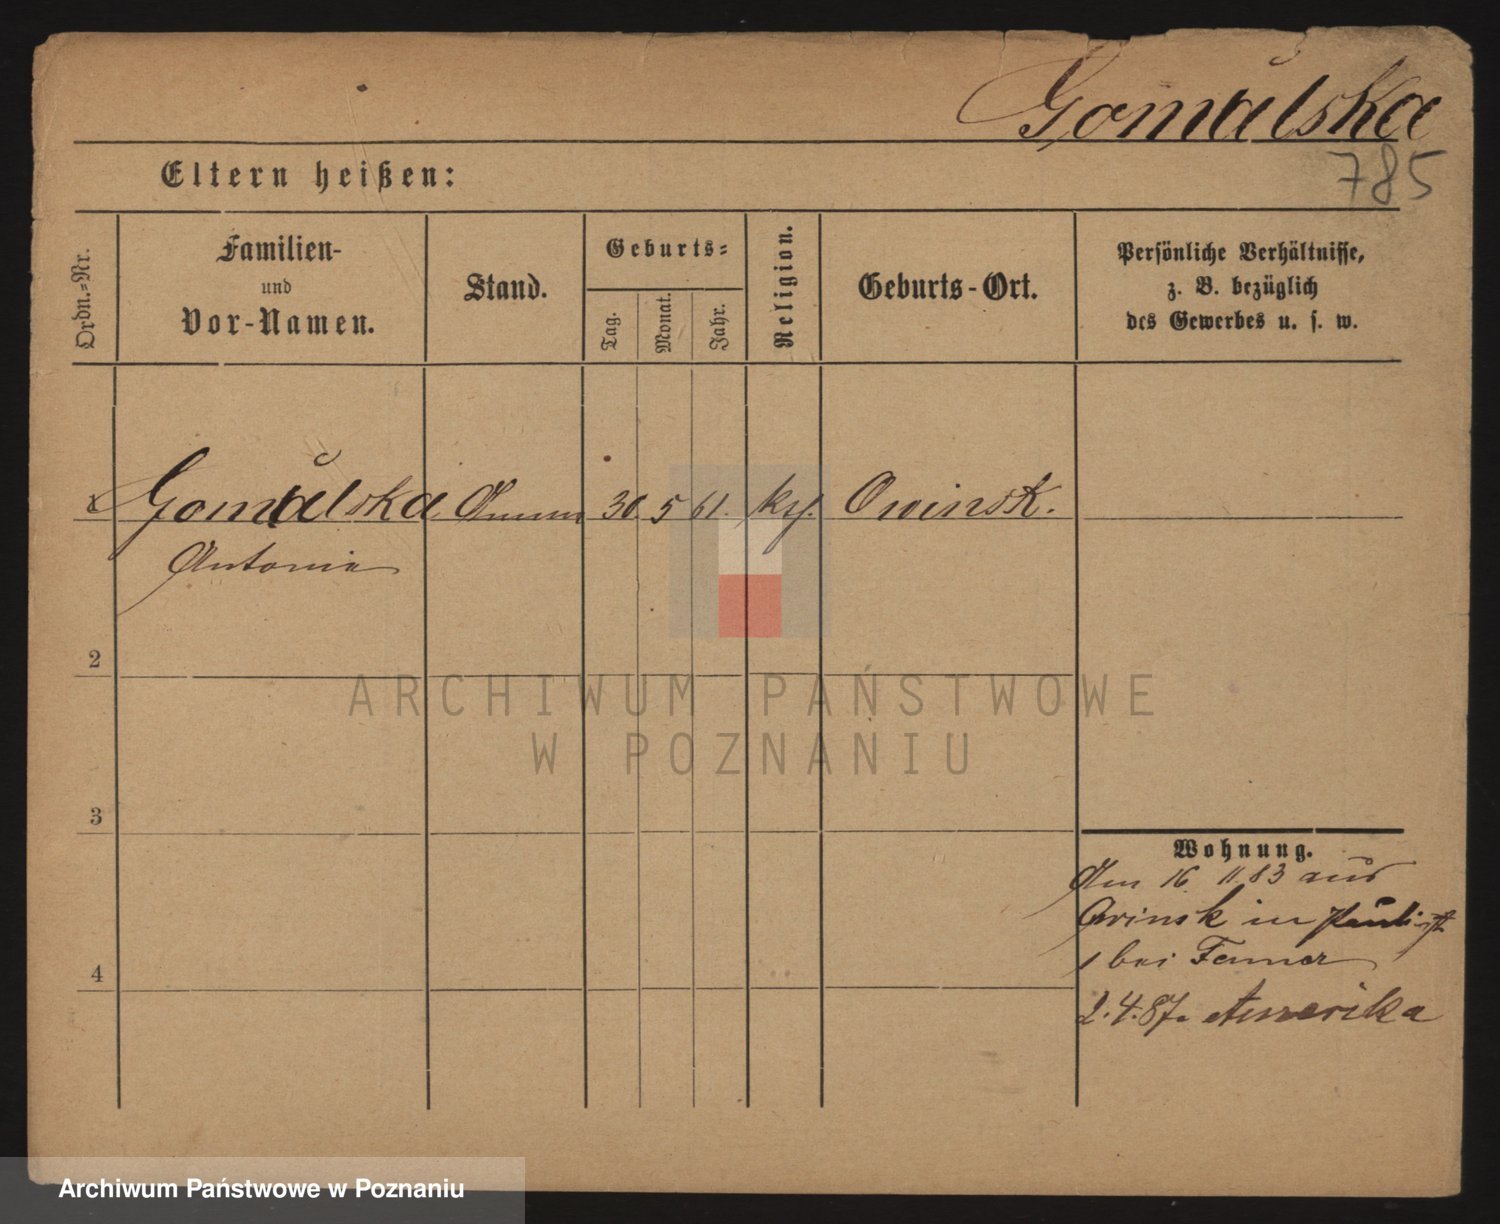 Gomulska
785
Eltern heißen:
Ordn.=Nr.
Familien-
und
Vor-Namen.
Stand.
Geburts=
Tag.
Monat.
Jahr.
Religion.
Geburts-Ort.
Persönliche Verhältnisse,
z. B. bezüglich
des Gewerbes u. s. w.
1 Gomulska 30 5 61. Owinsk.
Antonie
2
3
4
Wohnung.
Am 16 11 83 aus
Owinsk in
1 bei Fenner
2.4.87. Amerika
ARCHIWUM PAŃSTWOWE
W POZNANIU
Archiwum Państwowe w Poznaniu